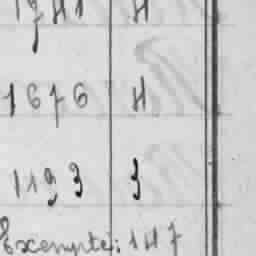 1741 4
1676 4
1193 3
Exempte: 147